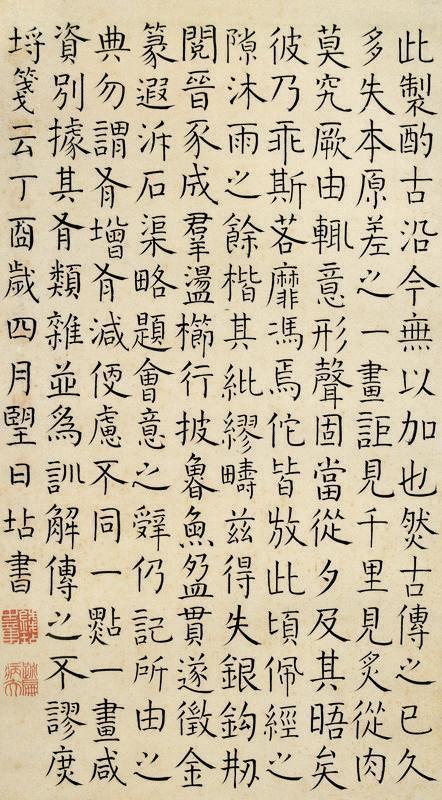 此製酌古沿今無以加也然古傳之已久
多失本原差之一畫詎見千里見炙從肉
莫究厥由輒意形聲固當從夕及其晤矣
彼乃乖斯若靡馮焉佗皆放此頃佩經之
隙沐雨之餘楷其紕繆疇茲得失銀鈎剏
閱晉豕成羣盪櫛行披魯魚盈貫遂徵金
篆遐泝石渠略題會意之辭仍記所由之
典勿謂有增有減便慮不同一點一畫咸
資別據其有類雜並為訓解傳之不謬庶
埒箋云丁酉歲四月望日坫書